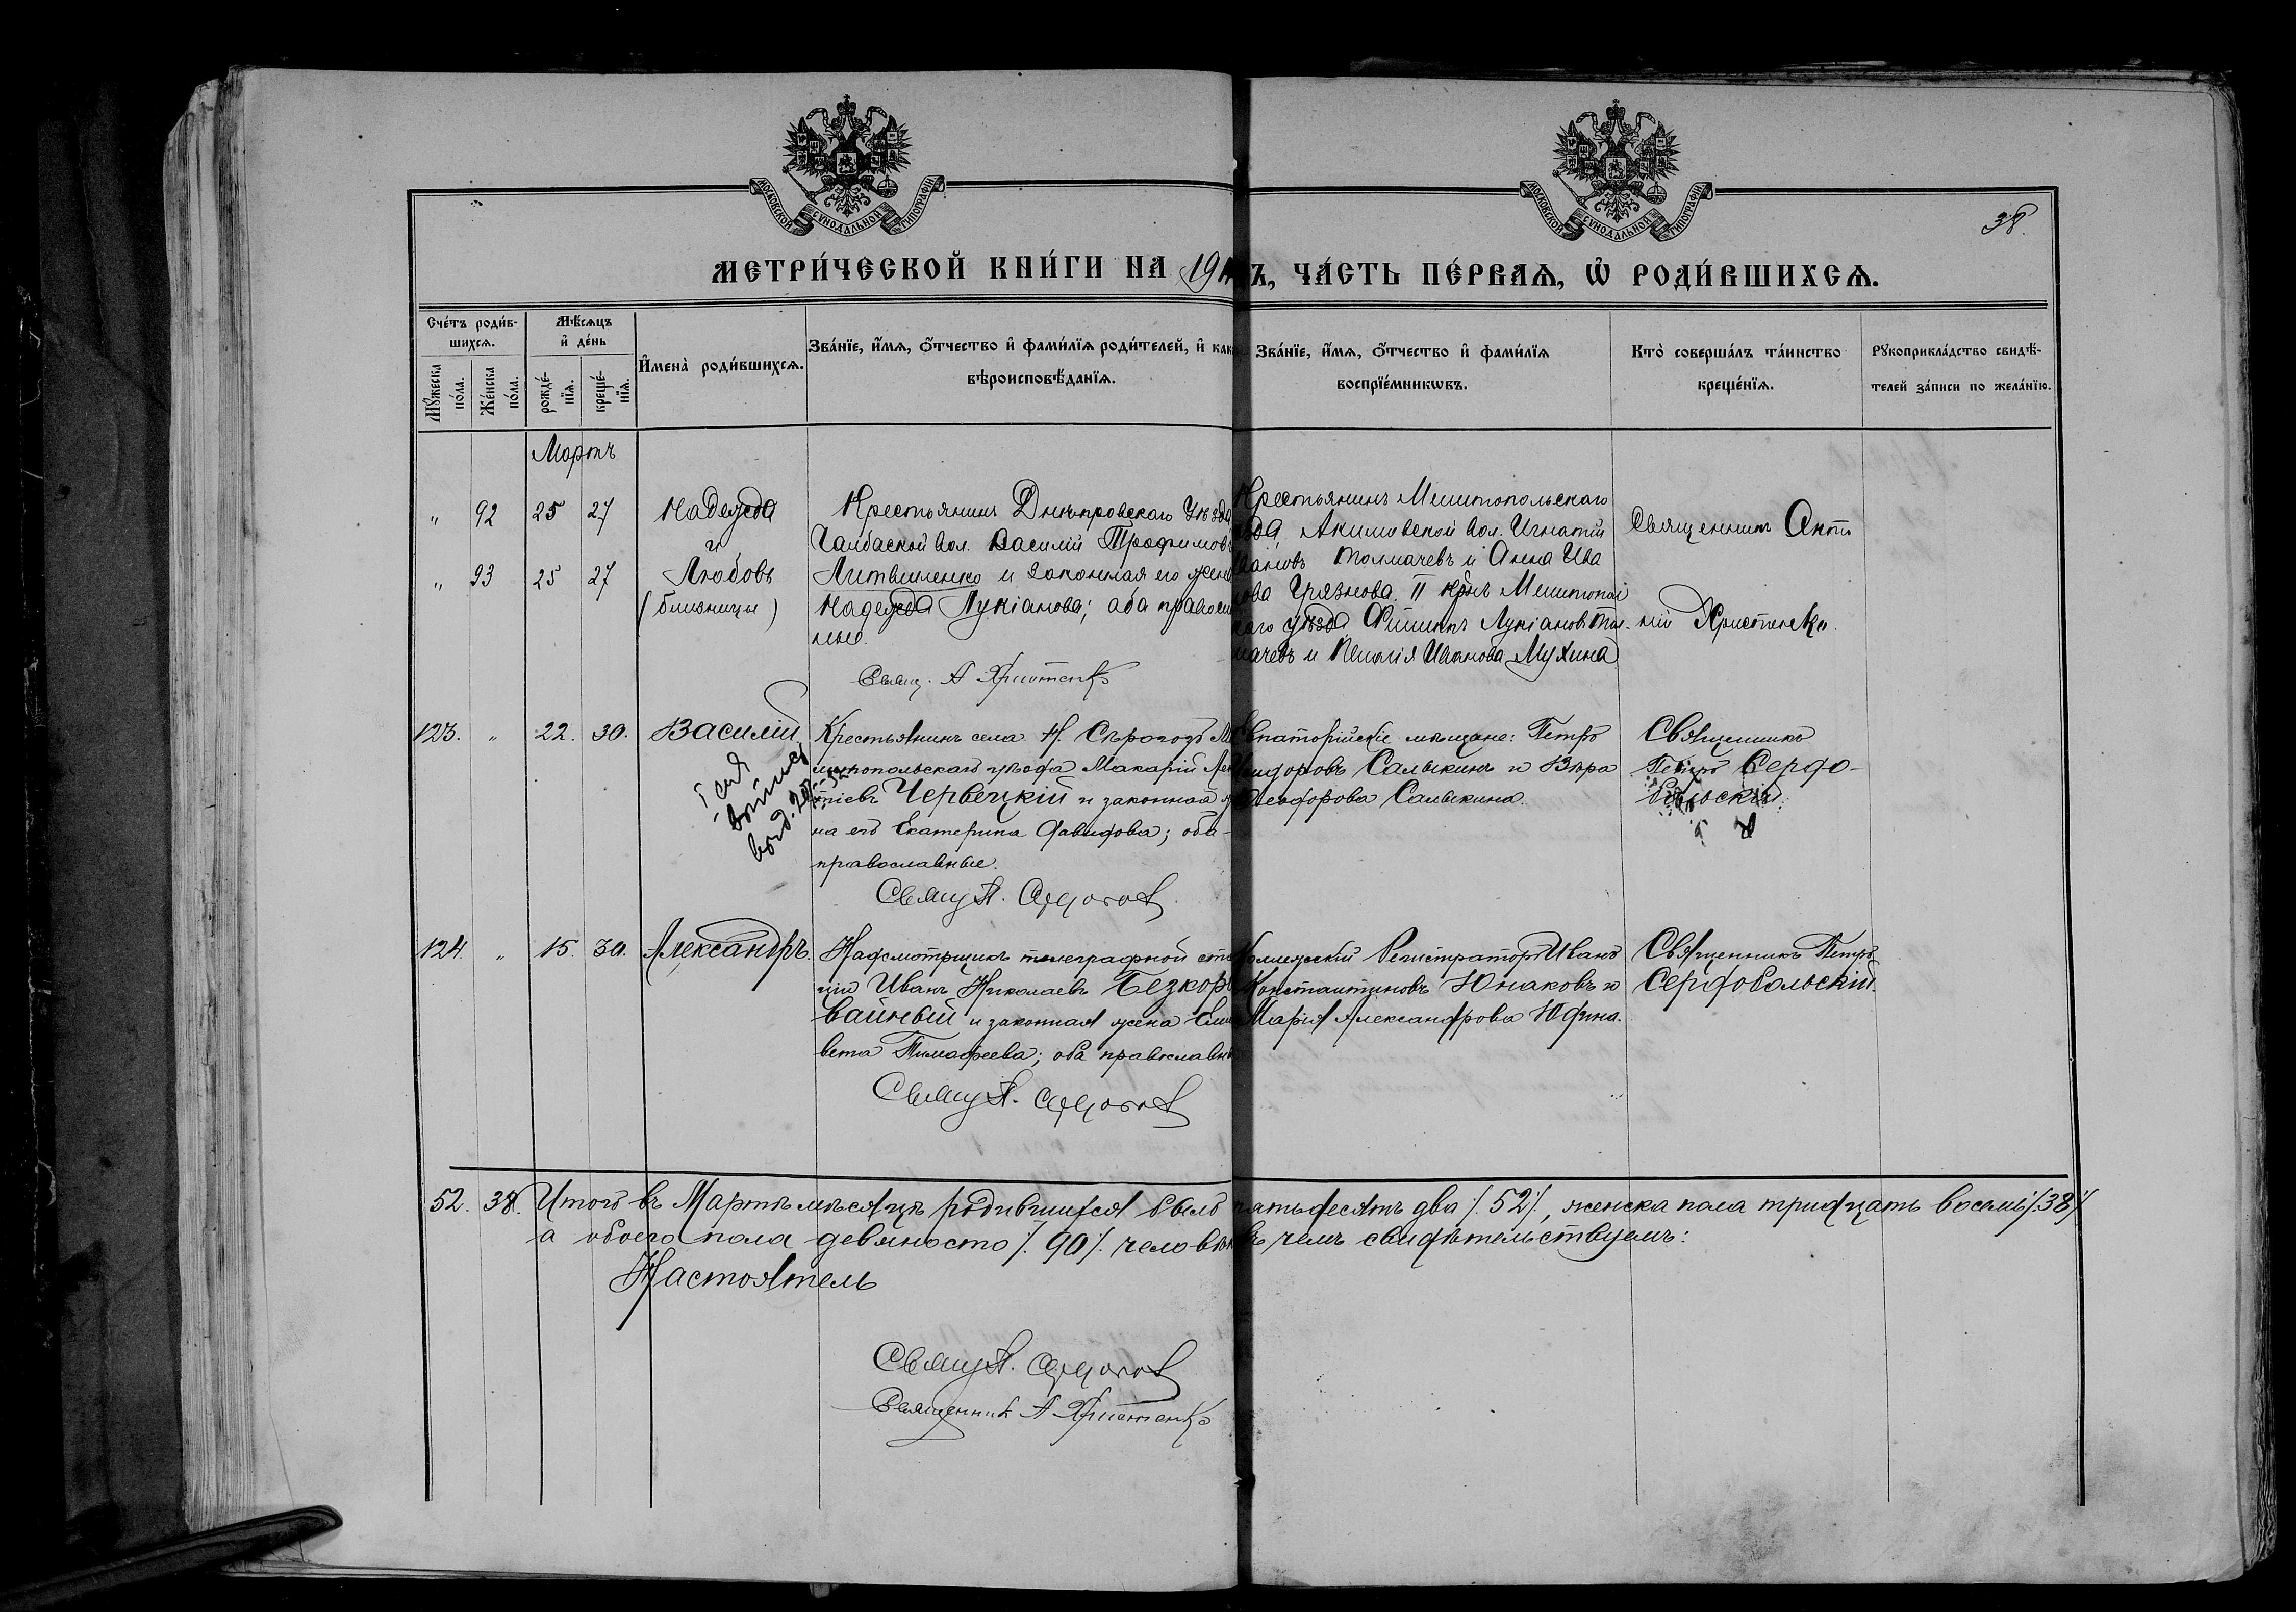 МОСКОВСКОЙ СУНОДАЛЬНОЙ ТИПОГРАФІИ
МОСКОВСКОЙ СУНОДАЛЬНОЙ ТИПОГРАФІИ
38.
МЕТРИ́ЧЕСКОЙ КНИ́ГИ НА 191 Ъ, ЧА́СТЬ ПЕ́РВАѦ, Ѡ҆ РОДИ́ВШИХСѦ.
Сче́тъ роди́в-
шихсѧ.
Мѣ́сѧцъ
и҆ де́нь
Мꙋ́жеска по́ла.
Же́нска по́ла.
рожде́-нїѧ.
креще́-нїѧ.
И҆мена̀ роди́вшихсѧ.
Зва́нїе, и҆́мѧ, ѻ҆́тчество и҆ фами́лїѧ роди́телей, и҆ как
вѣроисповѣ́данїѧ.
Зва́нїе, и҆́мѧ, ѻ҆́тчество и҆ фами́лїѧ
воспрїе́мникѡвъ.
Кто̀ соверша́лъ та́инство
креще́нїѧ.
Рꙋкоприкла́дство свидѣ́-
телей за́писи по жела́нїю.
Мартъ
" 92 25 27 Надежда
и
" 93 25 27 Любовь
(близницы)
Крестьянинъ Днѣпровскаго Уѣзда
Чалбаской вол. Василій Трофимов
Литвиненко и законная его жена
Надежда Лукіанова; оба правосл
ные.
Свящ. А Христенко
Крестьянинъ Мелитопольскаго
ѣзда, Акимовской вол. Игнатій
Ивановъ Толмачевъ и Анна Ива
нова Грязнова. II крн Мелитополь
скаго уѣзда Филиппъ Лукіановъ Тол-
мачевъ и Пелагія Иванова Мухина
Священникъ Анто
ній Христенко.
123. " 22. 30. Василій
Крестьянинъ села Н. Сѣрогозъ Ме
литопольскаго уѣзда Макарій Лео
нтіевъ Червецкій и законная ж
на его Екатерина Давидова; оба
православные.
Свящ П.
Евпаторійскіе мѣщане: Петръ
Исидоровъ Салыкинъ и Вѣра
Ѳеодорова Салыкина.
Священникъ
Петръ Сердо-
больскій
124. " 15. 30. Александръ.
Надсмотрщикъ телеграфной ста
ціи Иванъ Николаевъ Безкор
вайный и законная жена Ели
вета Тимофеева; оба православн
Свящ П.
Коллежскій Регистраторъ Иванъ
Константиновъ Юнаковъ и
Марія Александрова Юдина.
Священникъ Петръ
Сердобольскій.
52. 38. Итого въ Мартѣ мѣсяцѣ родившихся было пятьдесятъ два /.52/., женска пола тридцать восемь /.38/.
а обоего пола девяносто /.90/. человѣкъ чемъ свидѣтельствуемъ:
Настоятель
Свящ П.
Священникъ А Христенко